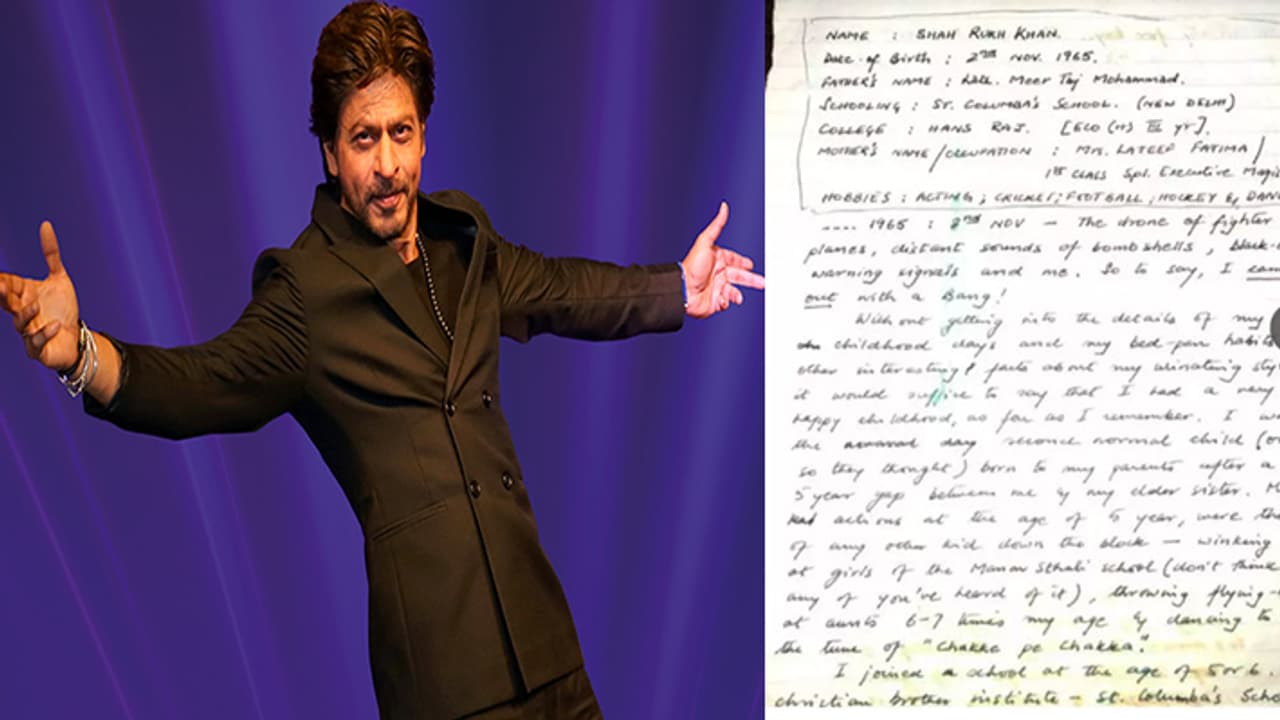 NAME : SHAH RUKH KHAN.
Date of Birth : 2nd NOV. 1965.
FATHER'S NAME : Late. Meer Taj Mohammad.
SCHOOLING : ST. COLUMBA'S SCHOOL. (NEW DELHI)
COLLEGE : HANS RAJ. [ECO (H) III yr].
MOTHER'S NAME/OCCUPATION : MRS. LATEEF FATIMA/
1st CLASS Spl. Executive Magis
HOBBIES : ACTING ; CRICKET ; FOOTBALL ; HOCKEY & DANC
.... 1965 : 2nd NOV — The drone of fighter
planes, distant sounds of bombshells, black-
warning signals and me. So to say, I cam
out with a Bang!
Without getting into the details of my
childhood days and my bed-pan habits
other interesting facts about my urinating sty
it would suffice to say that I had a very
happy childhood, as far as I remember. I w
the second normal child (or
so they thought) born to my parents after a
5 year gap between me & my elder sister. M
actions at the age of 5 year, were th
of any other kid down the block — winking
at girls of the Manav Sthali school (don't think
any of you've heard of it), throwing flying-
at aunts 6-7 times my age & dancing to
the tune of "Chakke pe Chakka".
I joined a school at the age of 5 or 6.
christian brother institute — St. Columba's Scho